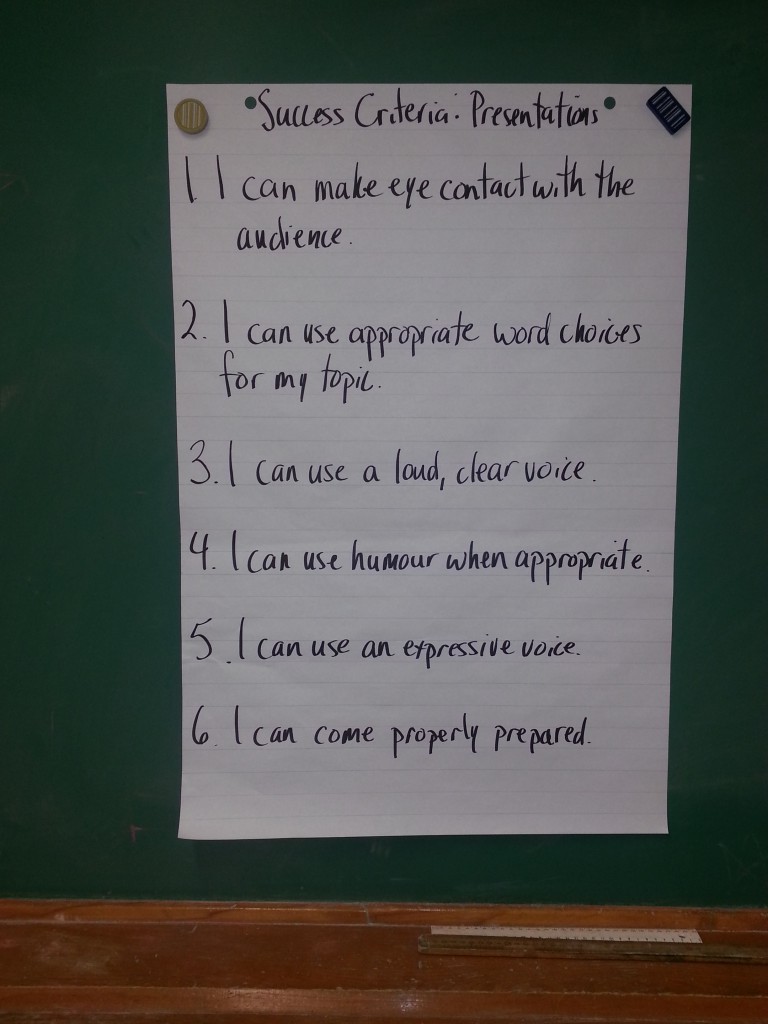 Success Criteria: Presentations
1. I can make eye contact with the
audience.
2. I can use appropriate word choices
for my topic.
3. I can use a loud, clear voice.
4. I can use humour when appropriate.
5. I can use an expressive voice.
6. I can come properly prepared.